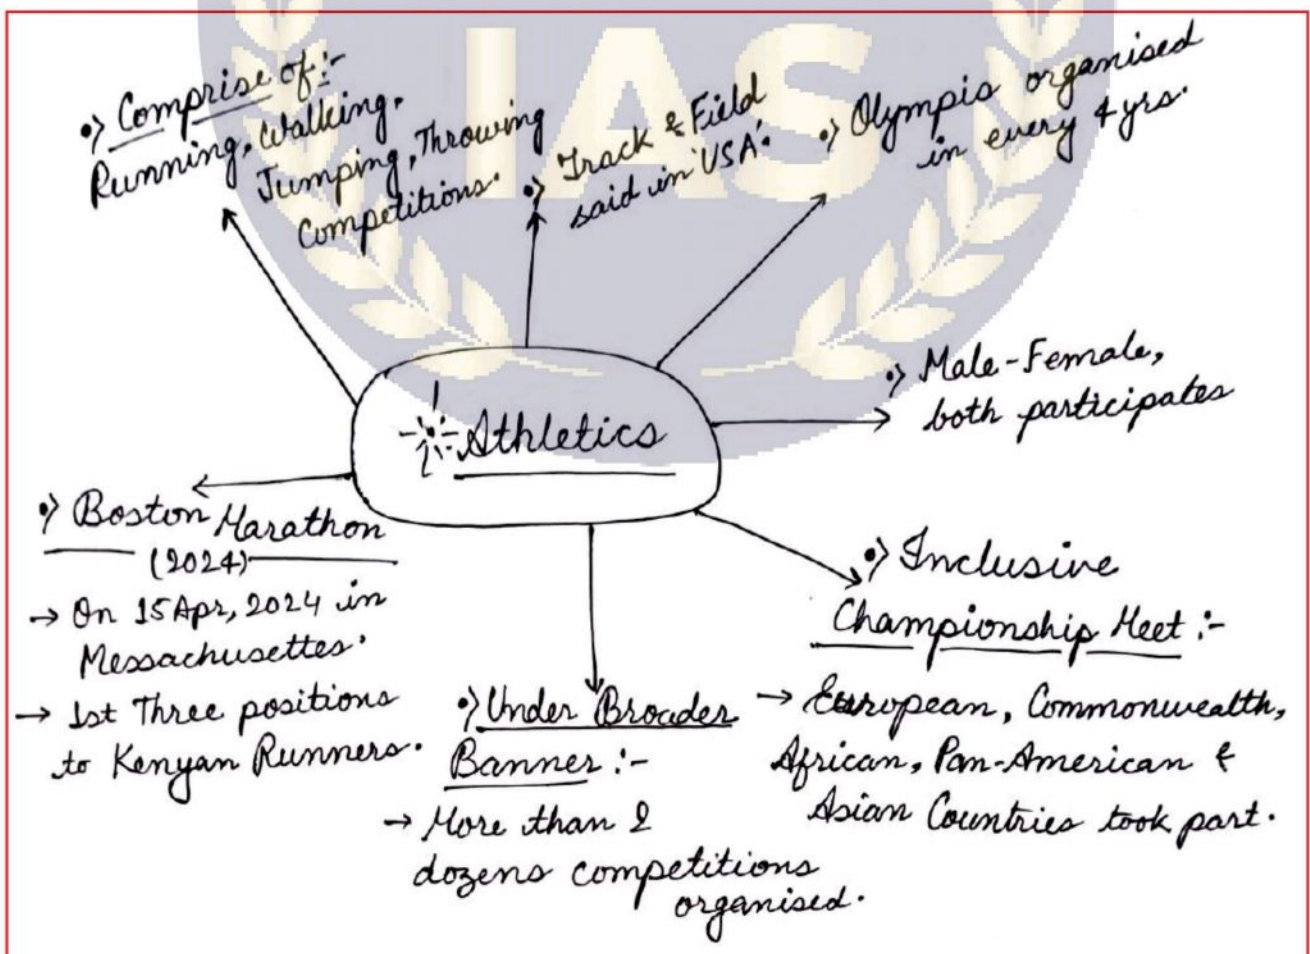 IAS
•) Comprise of :-
Running, Walking,
Jumping, Throwing
Competitions.
•) Track & Field
said in 'USA'.
•) Olympis organised
in every 4 yrs.
•) Male-Female,
both participates
Athletics
•) Boston Marathon
(2024)
→ On 15 Apr, 2024 in
Messachusettes.
→ 1st Three positions
to Kenyan Runners.
•) Under Broader
Banner :-
→ More than 2
dozens competitions
organised.
•) Inclusive
Championship Meet :-
→ European, Commonwealth,
African, Pan-American &
Asian Countries took part.